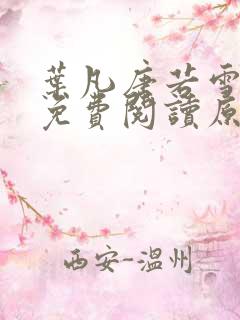 葉凡唐若雪
免費閱讀原
西安-溫州